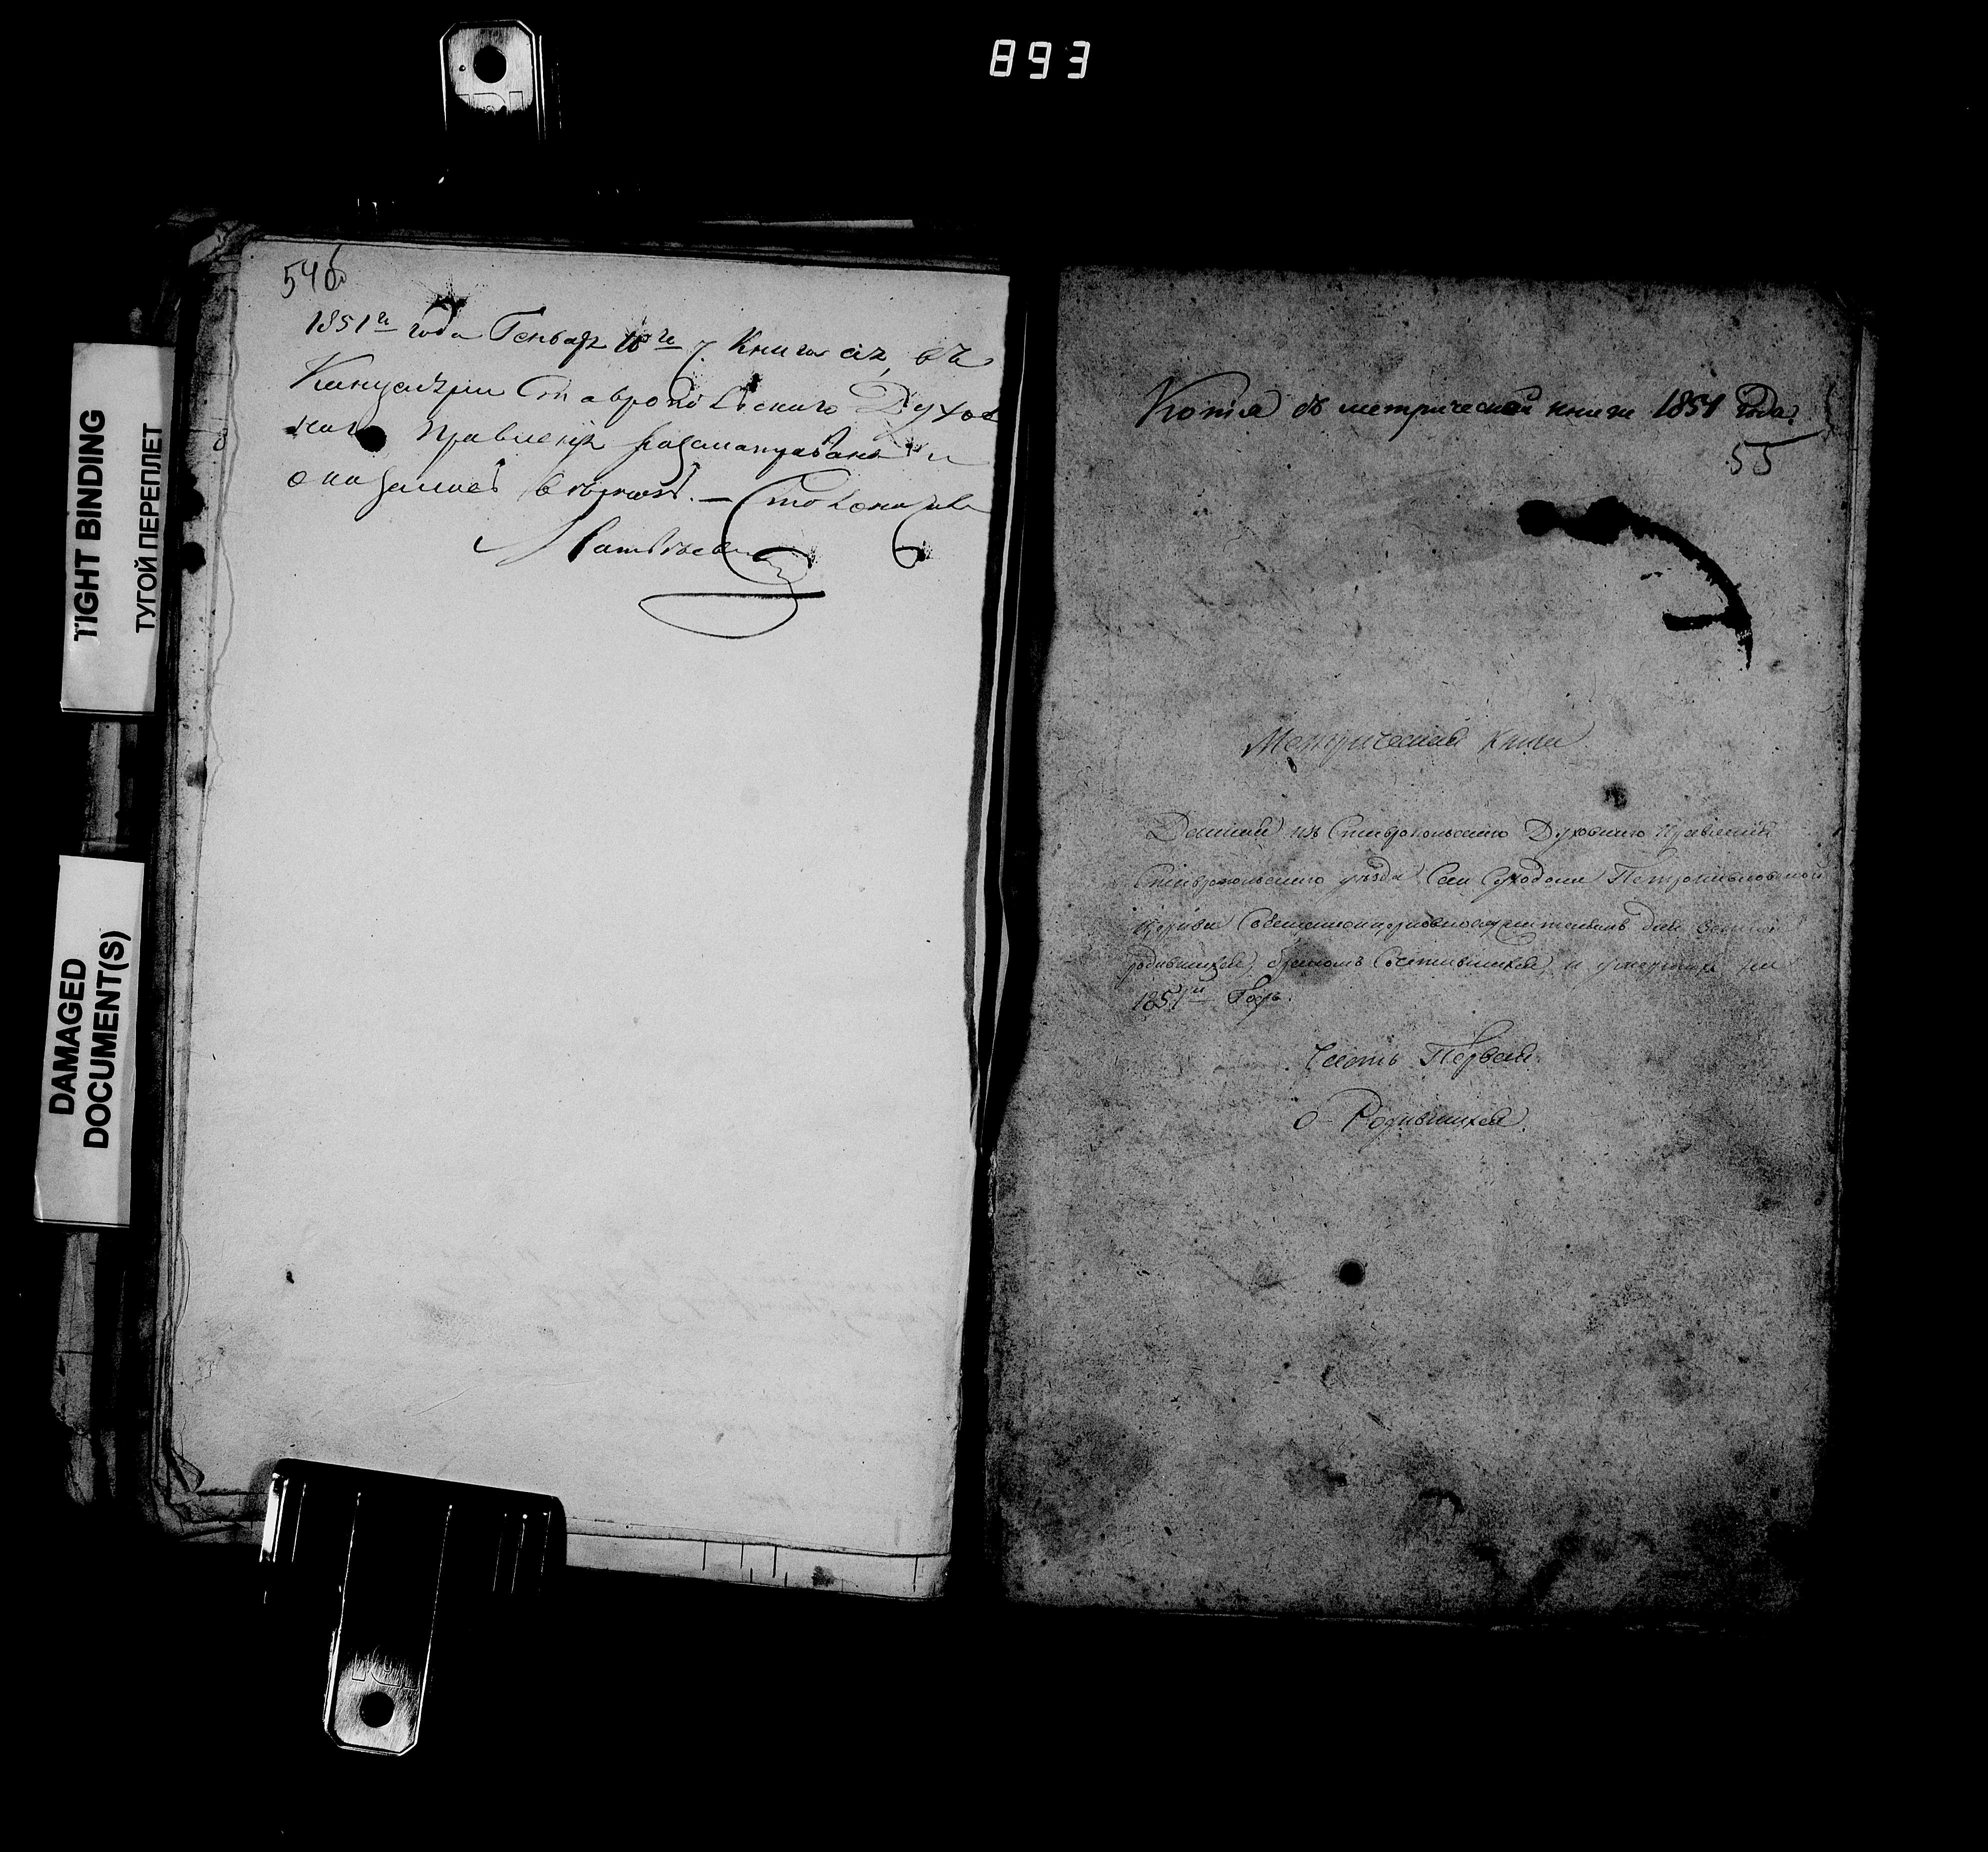 893
TIGHT BINDING
ТУГОЙ ПЕРЕПЛЕТ
DAMAGED
DOCUMENT(S)
54об
1851го года Генваря 10го Книга сія, въ
Канцеляріи Ставропольскаго Духов
наго Правленія разматривана и
оказалась верною. — Столоначал
Матвеев
Копія съ метрической книги 1851 года.
55
Метрическая книга
Данная изъ Ставропольскаго Духовнаго Правленія
Ставропольскаго уѣзда Села Суходола Петропавловской
церкви Священноцерковнослужителямъ для записи
родившихся, бракомъ сочетавшихся, и умершихъ на
1851й Годъ.
Часть Первая.
О Родившихся.